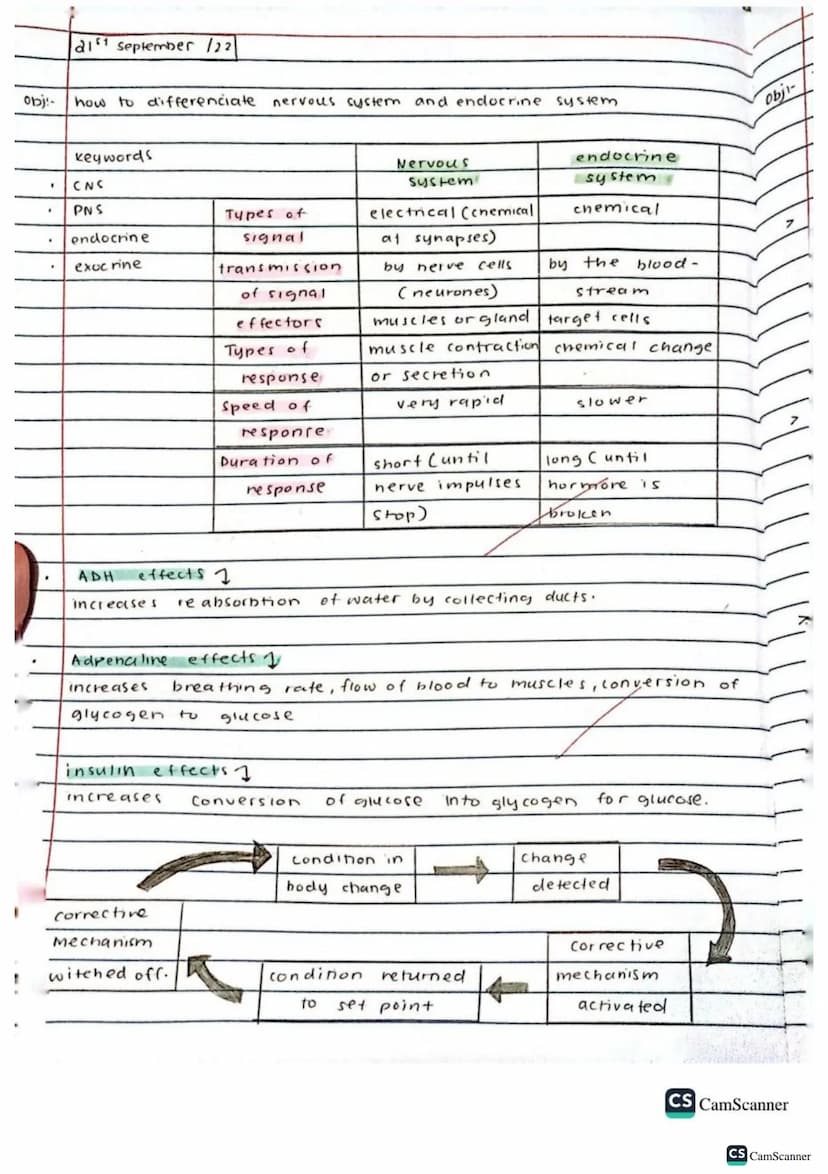 21st September /22
Obj:- how to differenciate nervous system and endocrine system
Obj:-
keywords
• CNS
• PNS
• endocrine
• exocrine
Nervous system
endocrine system
Types of signal
electrical (chemical at synapses)
chemical
transmission of signal
by nerve cells (neurones)
by the blood-stream
effectors
muscles or gland
target cells
Types of response
muscle contraction or secretion
chemical change
Speed of response
very rapid
slower
Duration of response
short (until nerve impulses stop)
long (until hormone is broken
• ADH effects
increases reabsorbtion of water by collecting ducts.
• Adrenaline effects
increases breathing rate, flow of blood to muscles, conversion of
glycogen to glucose
insulin effects
increases conversion of glucose into glycogen for glucose.
condition in
body change
change
detected
corrective
mechanism
activated
condition returned
to set point
corrective
mechanism
witched off.
7
7
7
CS CamScanner
CS CamScanner